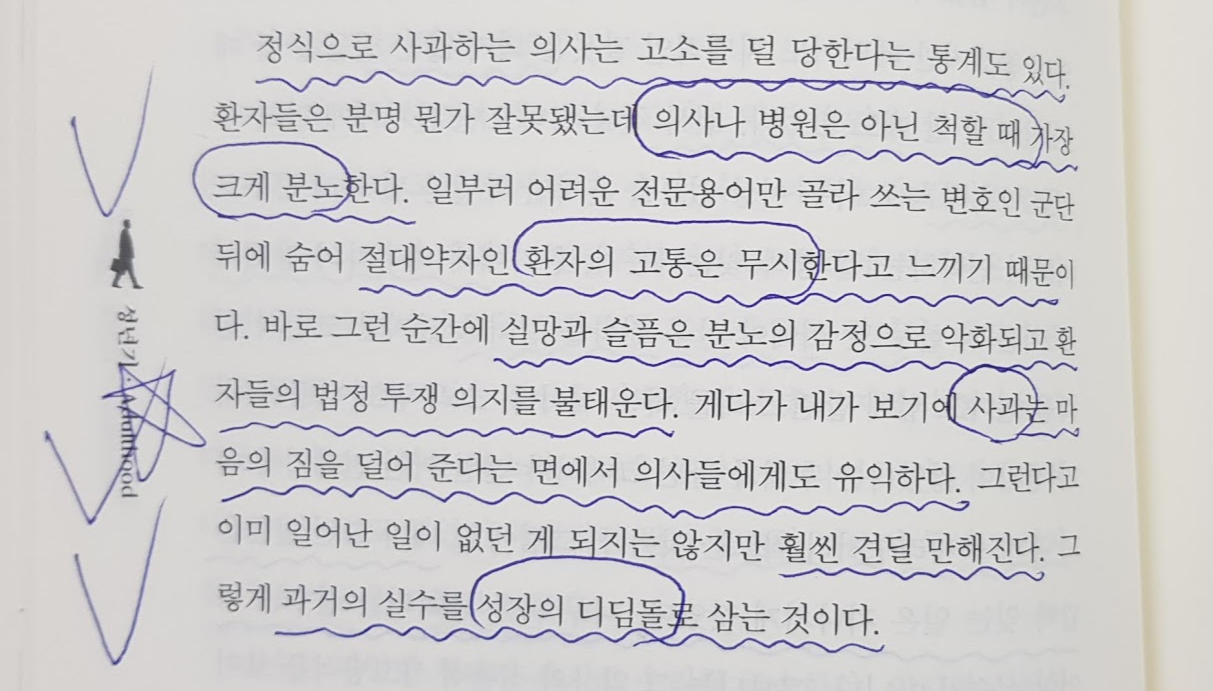 정식으로 사과하는 의사는 고소를 덜 당한다는 통계도 있다.
환자들은 분명 뭔가 잘못됐는데 의사나 병원은 아닌 척할 때 가장
크게 분노한다. 일부러 어려운 전문용어만 골라 쓰는 변호인 군단
뒤에 숨어 절대약자인 환자의 고통은 무시한다고 느끼기 때문이
다. 바로 그런 순간에 실망과 슬픔은 분노의 감정으로 악화되고 환
자들의 법정 투쟁 의지를 불태운다. 게다가 내가 보기에 사과는 마
음의 짐을 덜어 준다는 면에서 의사들에게도 유익하다. 그런다고
이미 일어난 일이 없던 게 되지는 않지만 훨씬 견딜 만해진다. 그
렇게 과거의 실수를 성장의 디딤돌로 삼는 것이다.
청년기: Adulthood